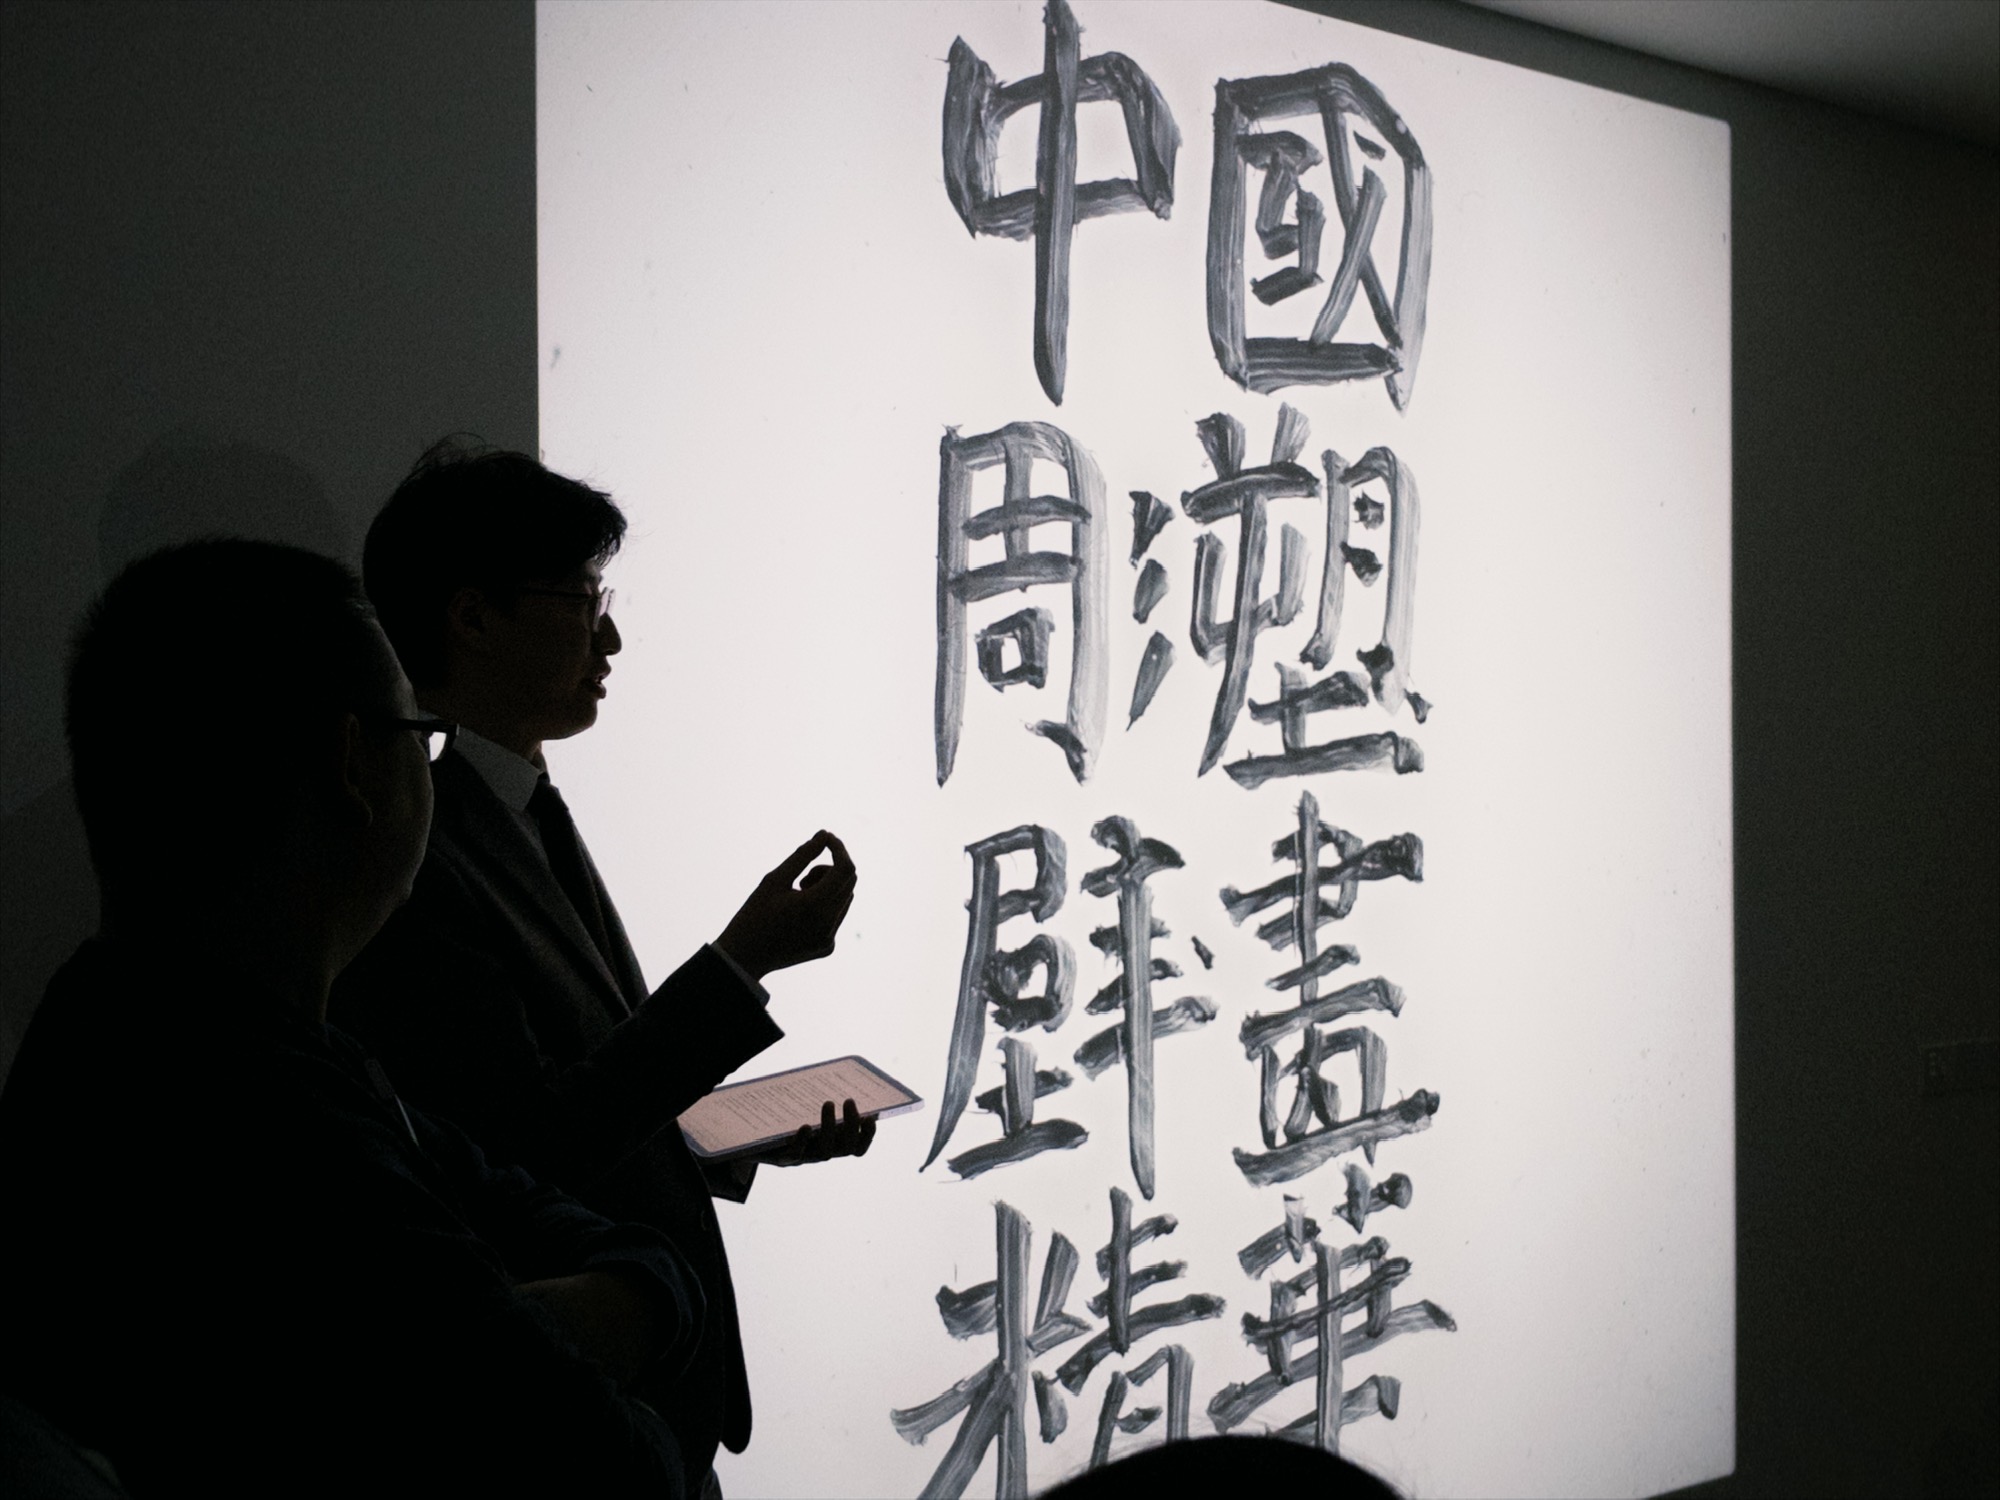 中國
彫塑
壁畫
精華